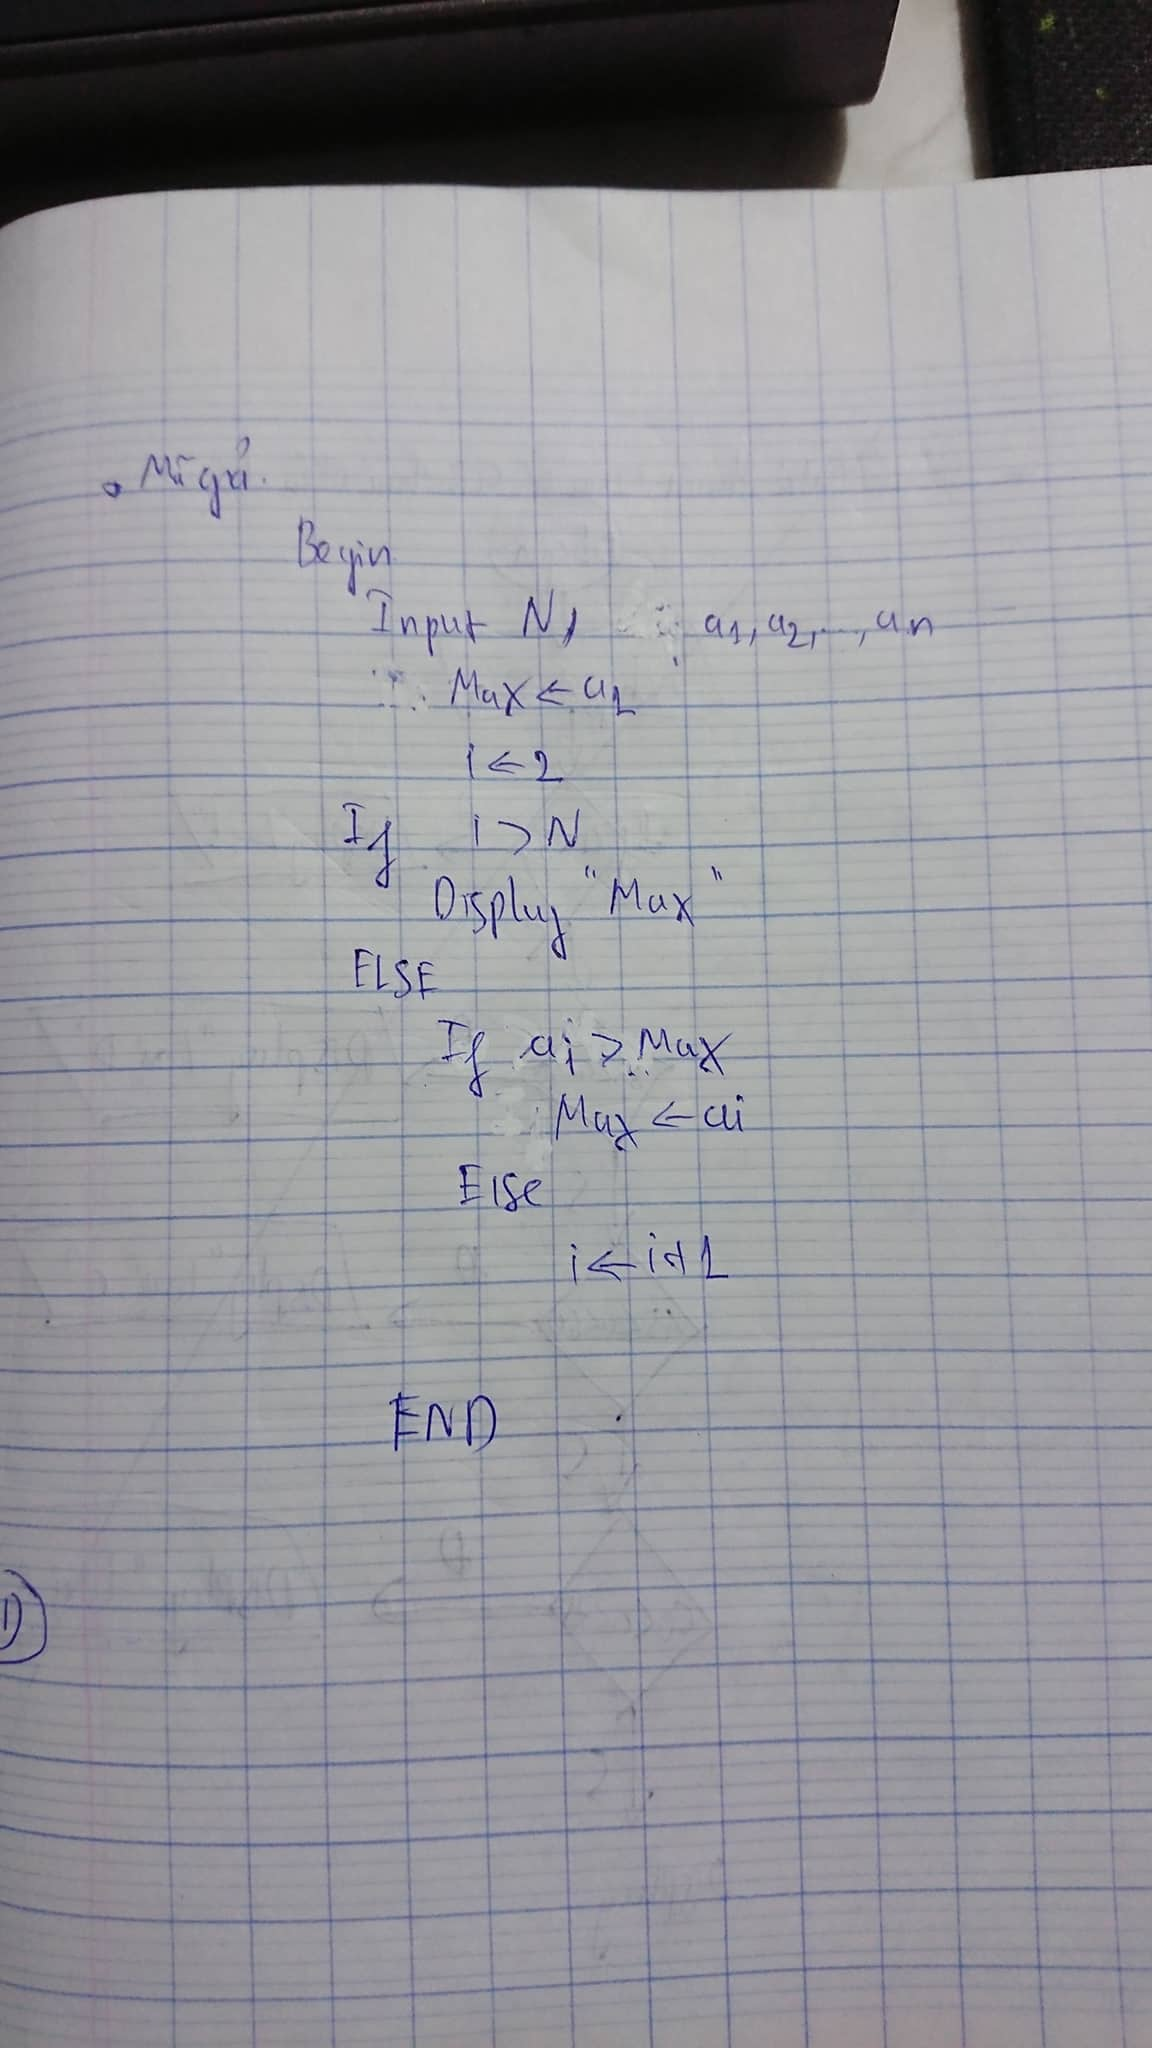 • Mĩ giả.
Begin
Input N, a1, a2, ..., an
Max ← a1
i ← 2
If i > N
Display "Max"
ELSE
If ai > Max
Max ← ai
Else
i ← i+1
END
1)